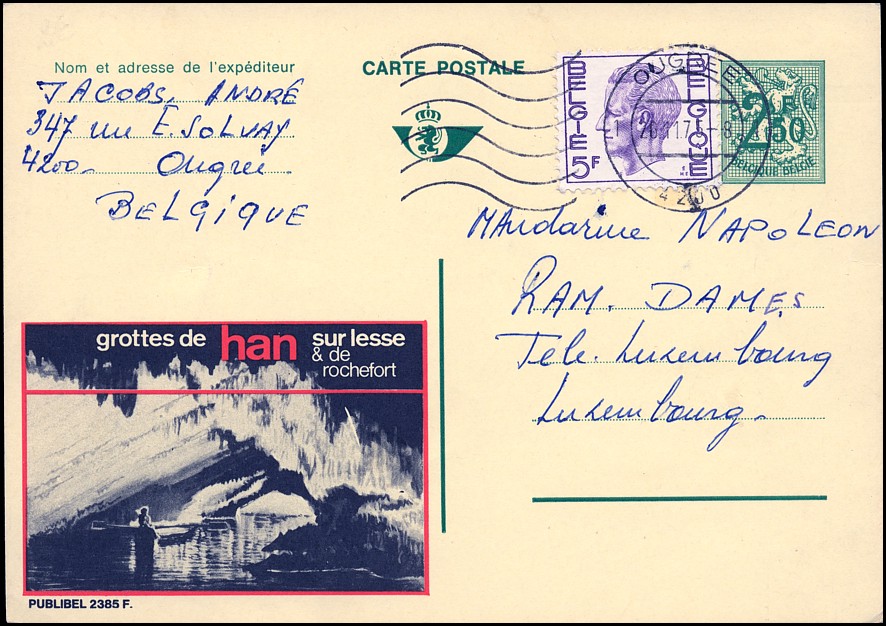 Nom et adresse de l'expéditeur
JACOBS. ANDRÉ
347 rue E. SOLVAY
4200 - Ougrée
BELGIQUE
CARTE POSTALE
BELGIE
BELGIQUE
5F
OUGREE
4200
2F50
BELGIQUE BELGIË
Mandarine NAPOLEON
RAM. DAMES
Tele. Luxembourg
Luxembourg -
grottes de han sur lesse
& de
rochefort
PUBLIBEL 2385 F.